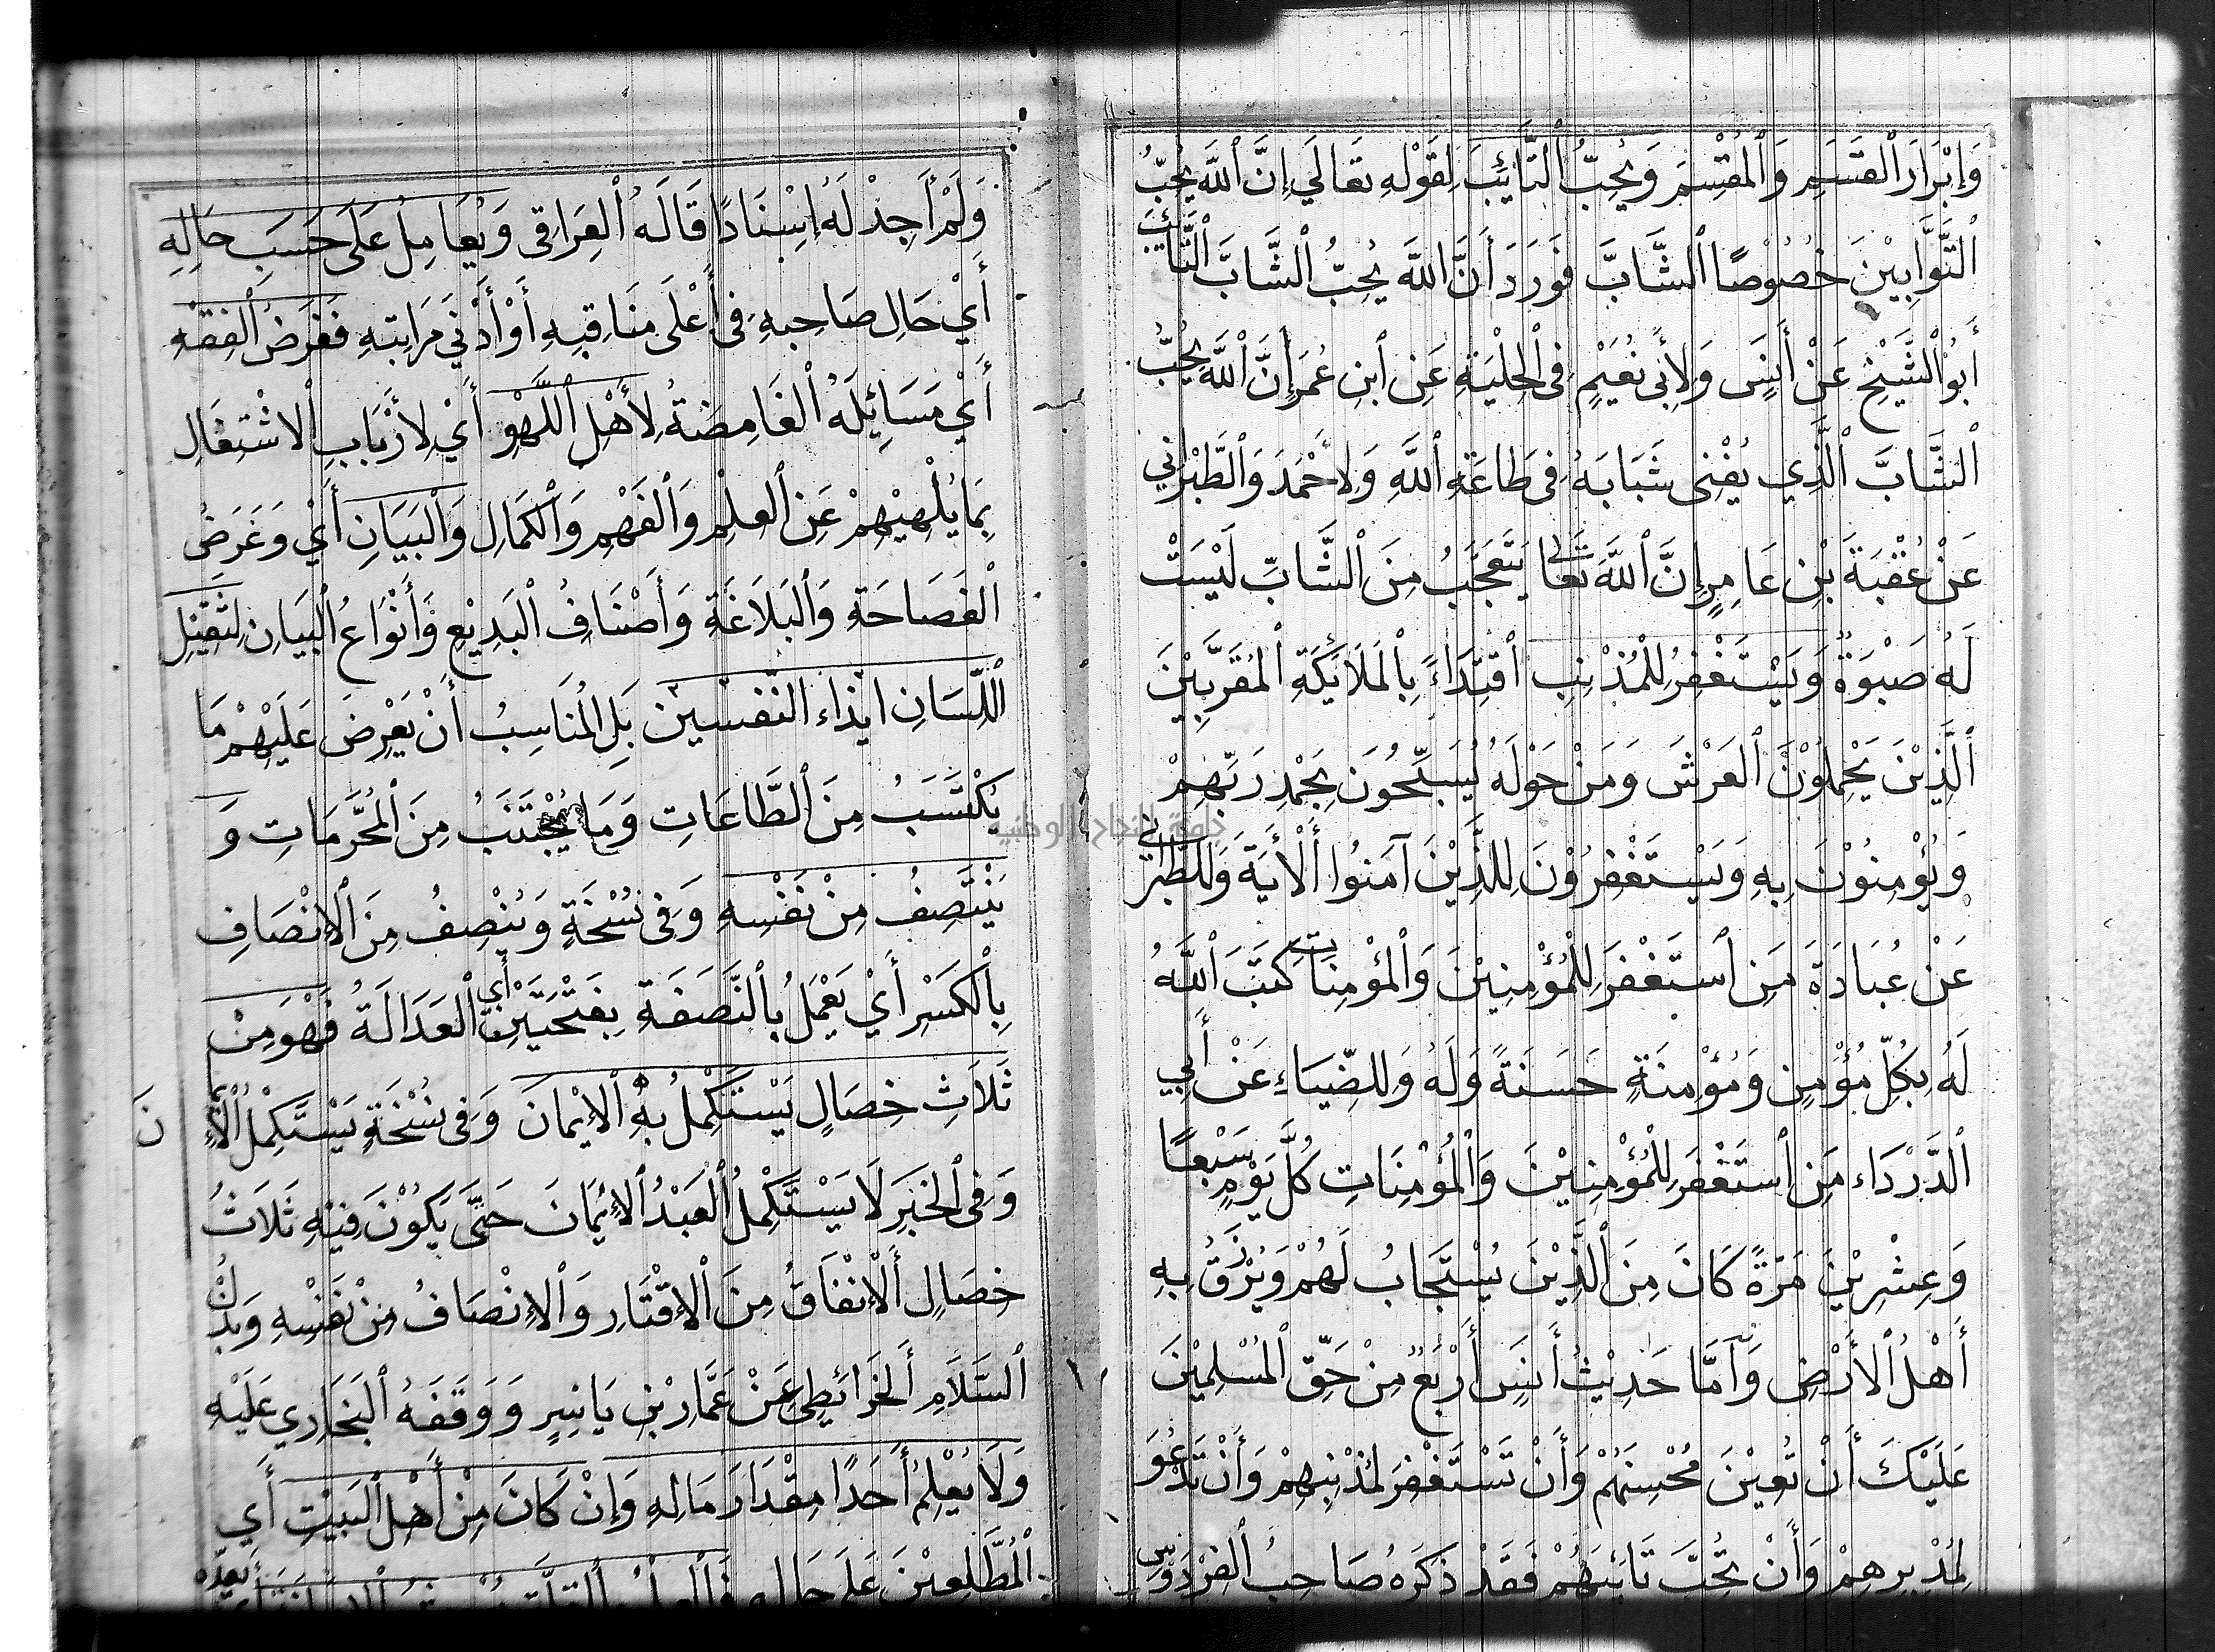 وَإِبْرَارَ الْقَسَمِ وَالْمُقْسِمَ وَيُحِبُّ التَّائِبَ لِقَوْلِهِ تَعَالَي إِنَّ اللَّهَ يُحِبُّ
التَّوَّابِيْنَ خُصُوْصًا الشَّابَّ فَوَرَدَ أَنَّ اللَّهَ يُحِبُّ الشَّابَّ التَّائِبَ
أَبُوْالشَّيْخِ عَنْ أَنَسٍ وَلِأَبِى نُعَيْمٍ فِى الْحِلْيَةِ عَنِ ابْنِ عُمَرَ إِنَّ اللَّهَ يُحِبُّ
الشَّابَّ الَّذِي يُفْنِى شَبَابَهُ فِى طَاعَةِ اللَّهِ وَلِأَحْمَدَ وَالطَّبْرَانِي
عَنْ عُقْبَةَ بْنِ عَامِرٍ إِنَّ اللَّهَ تَعَالَى يَتَعَجَّبُ مِنَ الشَّابِّ لَيْسَتْ
لَهُ صَبْوَةٌ وَيَسْتَغْفِرُ لِلْمُذْنِبِ اقْتِدَاءً بِالْمَلَائِكَةِ الْمُقَرَّبِيْنَ
الَّذِيْنَ يَحْمِلُوْنَ الْعَرْشَ وَمَنْ حَوْلَهُ يُسَبِّحُوْنَ بِحَمْدِ رَبِّهِمْ
وَيُؤْمِنُوْنَ بِهِ وَيَسْتَغْفِرُوْنَ لِلَّذِيْنَ آمَنُوا أَلْأَيَةَ وَلِلطَّبْرَانِي
عَنْ عُبَادَةَ مَنِ اسْتَغْفَرَ لِلْمُؤْمِنِيْنَ وَالْمُؤْمِنَاتِ كَتَبَ اللَّهُ
لَهُ بِكُلِّ مُؤْمِنٍ وَمُؤْمِنَةٍ حَسَنَةً وَلَهُ وَلِلضِّيَاءِ عَنْ أَبِي
الدَّرْدَاء مَنِ اسْتَغْفَرَ لِلْمُؤْمِنِيْنَ وَالْمُؤْمِنَاتِ كُلَّ يَوْمٍ سَبْعًا
وَعِشْرِيْنَ مَرَّةً كَانَ مِنَ الَّذِيْنَ يُسْتَجَابُ لَهُمْ وَيُرْزَقُ بِهِ
أَهْلُ الْأَرْضِ وَأَمَّا حَدِيْثُ أَنَسٍ أَرْبَعٌ مِنْ حَقِّ الْمُسْلِمِيْنَ
عَلَيْكَ أَنْ تُعِيْنَ مُحْسِنَهُمْ وَأَنْ تَسْتَغْفِرَ لِمُذْنِبِهِمْ وَأَنْ تَدْعُوَ
لِمُدْبِرِهِمْ وَأَنْ تُحِبَّ تَائِبَهُمْ فَقَدْ ذَكَرَهُ صَاحِبُ الْفِرْدَوْسِ
وَلَمْ أَجِدْ لَهُ اِسْنَادًا قَالَهُ الْعِرَاقِى وَيُعَامِلُ عَلَى حَسَبِ حَالِهِ
أَيْ حَالِ صَاحِبِهِ فِى أَعْلَى مَنَاقِبِهِ أَوْ أَدْنَي مَرَاتِبِهِ فَغَرَضُ الْفِقْهِ
أَيْ مَسَائِلَهُ الْغَامِضَةُ لِأَهْلِ اللَّهْوِ أَيْ لِأَرْبَابِ الْاشْتِغَالِ
بِمَا يُلْهِيْهِمْ عَنِ الْعِلْمِ وَالْفَهْمِ وَالْكَمَالِ وَالْبَيَانِ أَيْ وَغَرَضُ
الْفَصَاحَةِ وَالْبَلَاغَةِ وَأَصْنَافُ الْبَدِيْعِ وَأَنْوَاعُ الْبَيَانِ لِثَقِيْلِ
اللِّسَانِ ايْذَاء النَّفْسَيْنِ بَلِ الْمُنَاسِبُ أَنْ يَعْرِضَ عَلَيْهِمْ مَا
يُكْتَسَبُ مِنَ الطَّاعَاتِ وَمَا يُجْتَنَبُ مِنَ الْمُحَرَّمَاتِ وَ
يَنْتَصِفُ مِنْ نَفْسِهِ وَفِى نُسْخَةٍ وَيُنْصِفُ مِنَ الْاِنْصَافِ
بِالْكَسْرِ أَيْ يَعْمَلُ بِالنَّصَفَةِ بِفَتْحَتَيْنِ أَي الْعَدَالَةُ فَهْوَ مِنْ
ثَلَاثِ خِصَالٍ يَسْتَكْمِلُ بِهِ الْاِيْمَانَ وَفِى نُسْخَةٍ يَسْتَكْمِلُ الْاِيْمَا
نَ
وَفِى الْخَبَرِ لَا يَسْتَكْمِلُ الْعَبْدُ الْاِيْمَانَ حَتَّى يَكُوْنَ فِيْهِ ثَلَاثُ
خِصَالٍ أَلْاِنْفَاقُ مِنَ الْاِقْتَارِ وَالْاِنْصَافُ مِنْ نَفْسِهِ وَبَذْلُ
السَّلَامِ أَلْخَرَائِطِي عَنْ عَمَّارِ بْنِ يَاسِرٍ وَوَقَفَهُ الْبُخَارِي عَلَيْهِ
وَلَا يُعْلِمُ أَحَدًا مِقْدَارَ مَالِهِ وَإِنْ كَانَ مِنْ أَهْلِ الْبَيْتِ أَيِ
الْمُطَّلِعِيْنَ عَلَى حَالِهِ
جامعة النجاح الوطنية